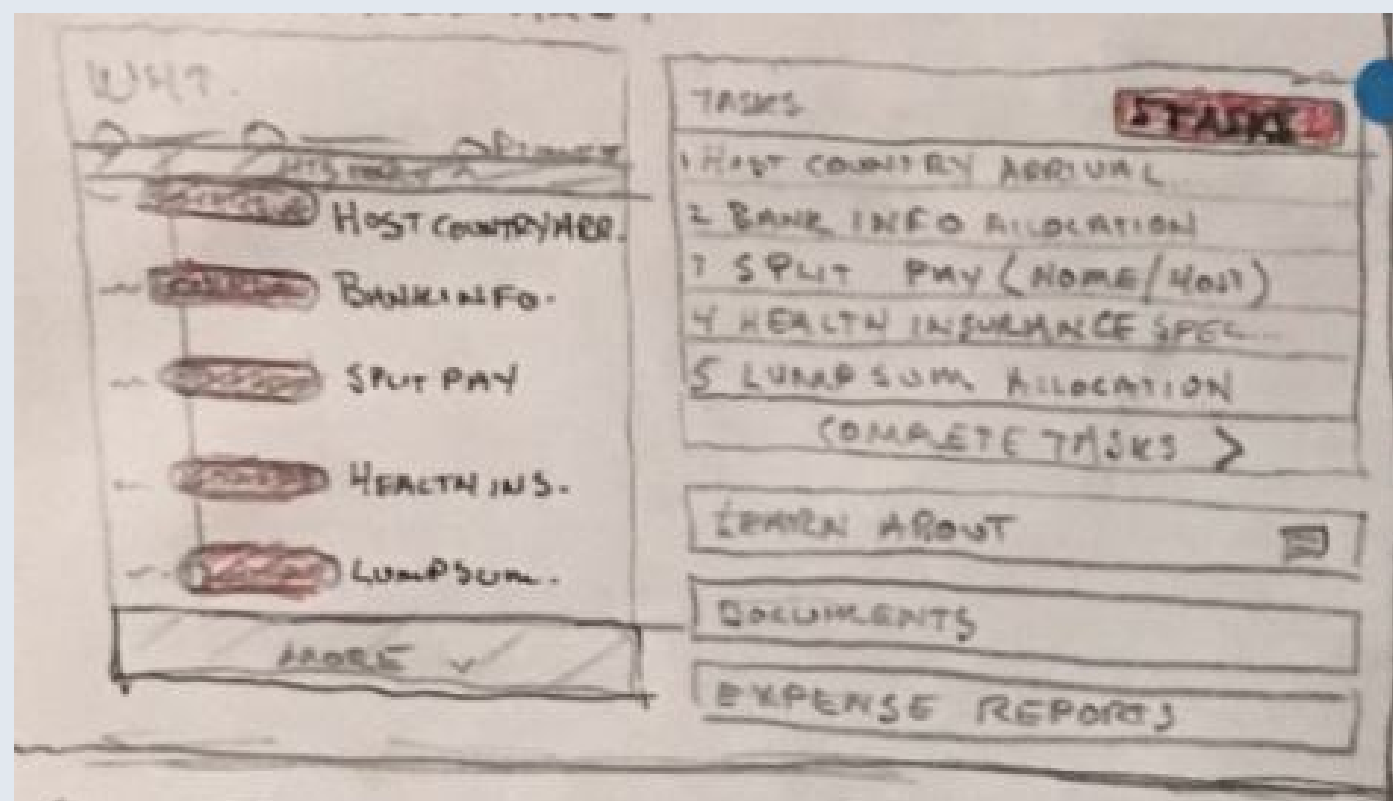 HISTORY ^
HOST COUNTRY ARR.
BANK INFO.
SPLIT PAY
HEALTH INS.
LUMP SUM.
MORE ˅
TASKS
5 TASKS
1 HOST COUNTRY ARRIVAL
2 BANK INFO ALLOCATION
3 SPLIT PAY (HOME/HOST)
4 HEALTH INSURANCE SPEC...
5 LUMP SUM ALLOCATION
COMPLETE TASKS >
LEARN ABOUT
DOCUMENTS
EXPENSE REPORTS